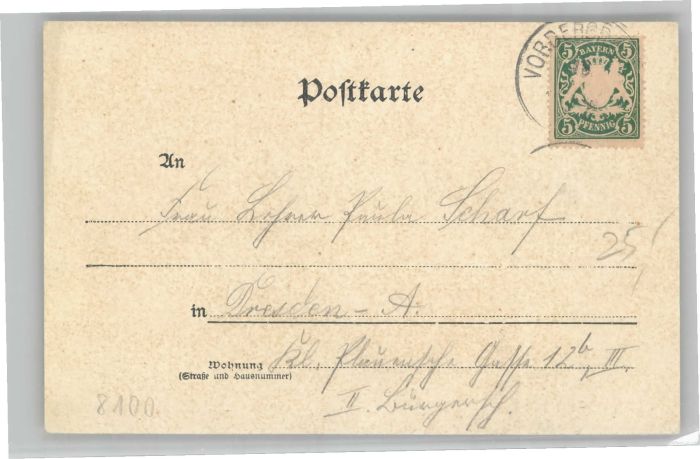 VORDERGR
5 BAYERN 5
5 PFENNIG 5
Postkarte
An
Frau Lehrer Paula Scharf
25
in Dresden - A.
Wohnung Kl. Plauensche Gasse 12b, III.
(Straße und Hausnummer)
II. Bürgersch.
8100